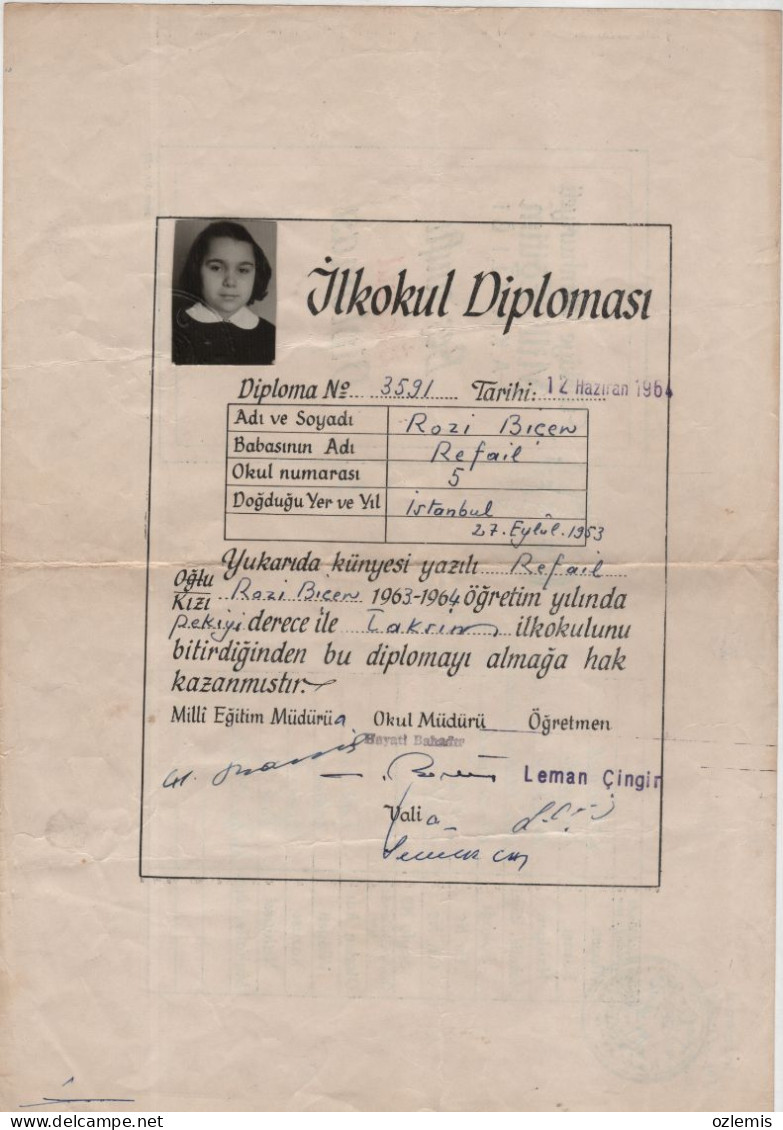 İlkokul Diploması
Diploma Nº 3591 Tarihi: 12 Haziran 1964
Adı ve Soyadı Rozi Biçen
Babasının Adı Refail
Okul numarası 5
Doğduğu Yer ve Yıl İstanbul
27. Eylül. 1953
Yukarıda künyesi yazılı Refail
Oğlu
Kızı Rozi Biçen 1963-1964 öğretim yılında
pekiyi derece ile Taksim ilkokulunu
bitirdiğinden bu diplomayı almağa hak
kazanmıştır.
Millî Eğitim Müdürü a Okul Müdürü Öğretmen
Hayati Bahadır
Leman Çingir
Vali a
delcampe.net
ozlemis